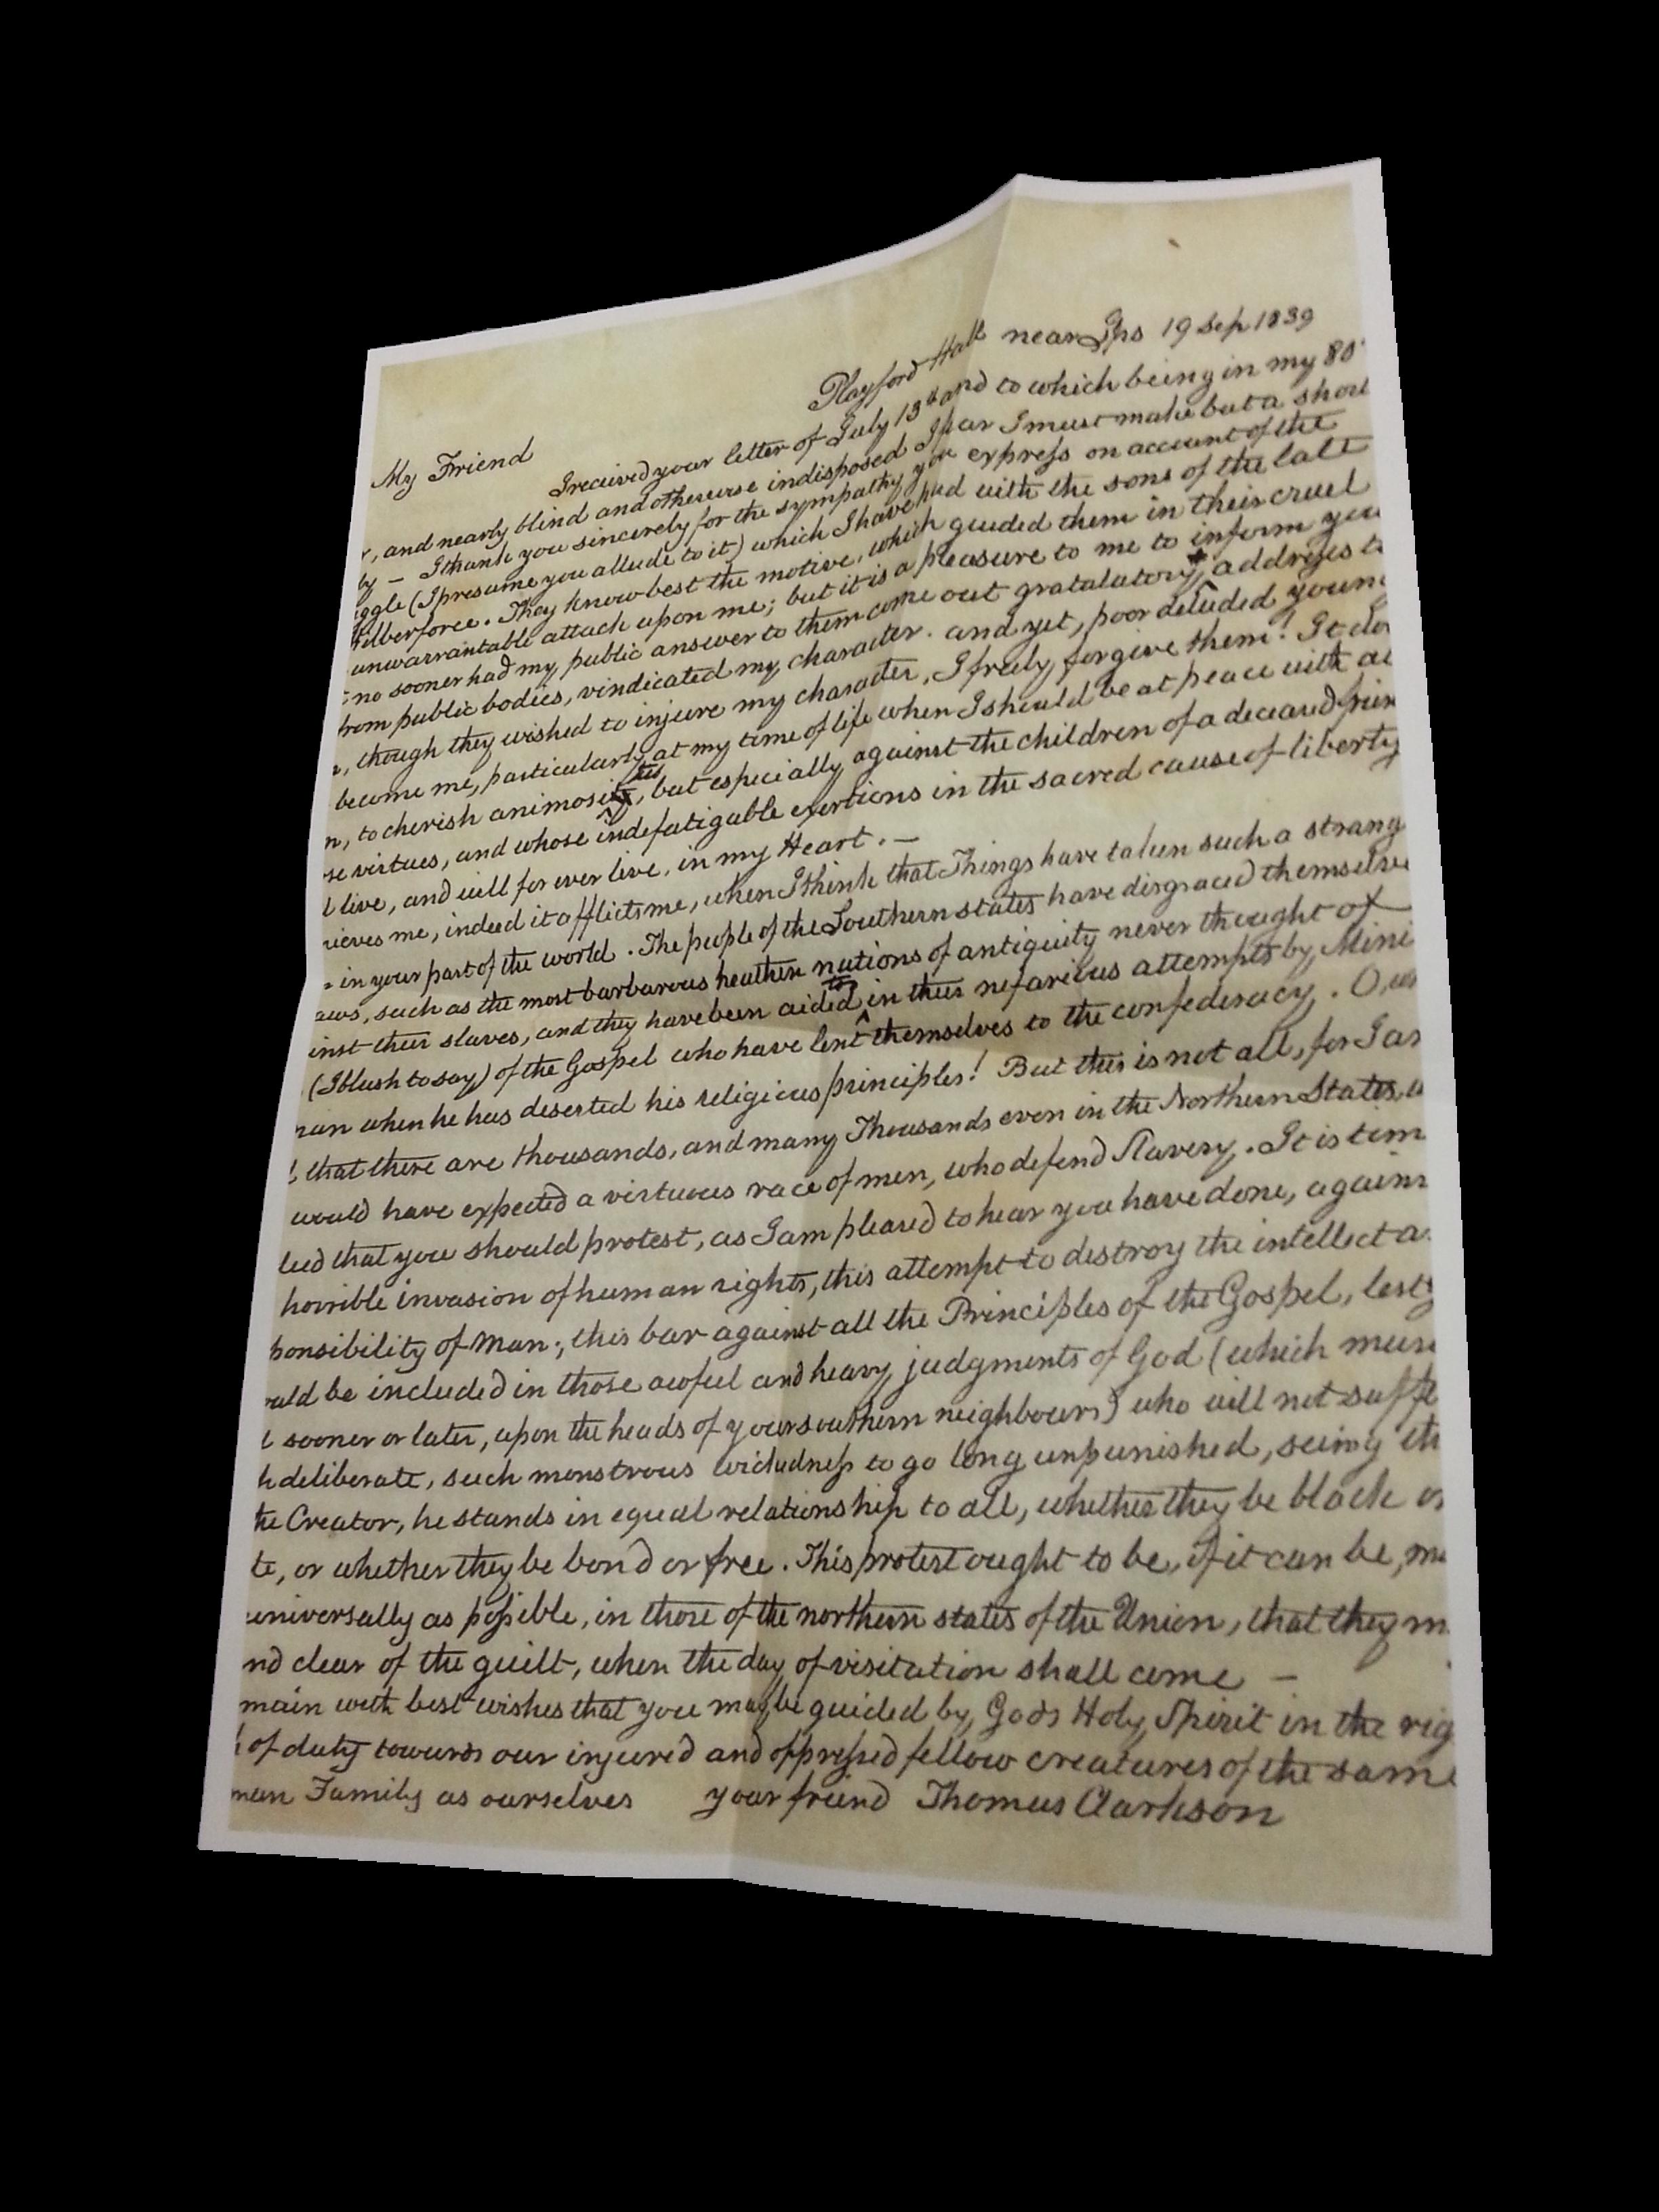 Playford Hall near Ips 19 Sep 1839
My Friend
I received your letter of July 13th and to which being in my 80
r, and nearly blind and otherwise indisposed I fear I must make but a short
ly — I thank you sincerely for the sympathy you express on account of the
ggle (I presume you allude to it) which I have had with the sons of the late
ilberforce. They know best the motive, which guided them in their cruel
unwarrantable attack upon me; but it is a pleasure to me to inform you
no sooner had my public answer to them come out gratulatory addresses to
from public bodies, vindicated my character. and yet, poor deluded young
n, though they wished to injure my character, I freely forgive them! It do
become me, particularly at my time of life when I should be at peace with al
n, to cherish animosities, but especially against the children of a deceased frien
se virtues, and whose indefatigable exertions in the sacred cause of liberty
l live, and will for ever live, in my Heart. —
rieves me, indeed it afflicts me, when I think that Things have taken such a strang
in your part of the world. The people of the Southern states have disgraced themselve
aws, such as the most barbarous heathen nations of antiquity never thought of
inst their slaves, and they have been aided in their nefarious attempts by Mini
(I blush to say) of the Gospel who have lent themselves to the confederacy. O, w
man when he has deserted his religious principles! But this is not all, for I am
that there are thousands, and many Thousands even in the Northern States, w
would have expected a virtuous race of men, who defend Slavery. It is tim
eed that you should protest, as I am pleased to hear you have done, agains
horrible invasion of human rights, this attempt to destroy the intellect a
ponsibility of Man; this bar against all the Principles of the Gospel, lest y
ould be included in those awful and heavy judgments of God (which mus
l sooner or later, upon the heads of your southern neighbours) who will not suffe
h deliberate, such monstrous wickedness to go long unpunished, seeing th
the Creator, he stands in equal relationship to all, whether they be black or
te, or whether they be bond or free. This protest ought to be, if it can be, ma
universally as possible, in those of the northern states of the Union, that they m
nd clear of the guilt, when the day of visitation shall come —
main with best wishes that you may be guided by God's Holy Spirit in the rig
h of duty towards our injured and oppressed fellow creatures of the same
man Family as ourselves your friend Thomas Clarkson